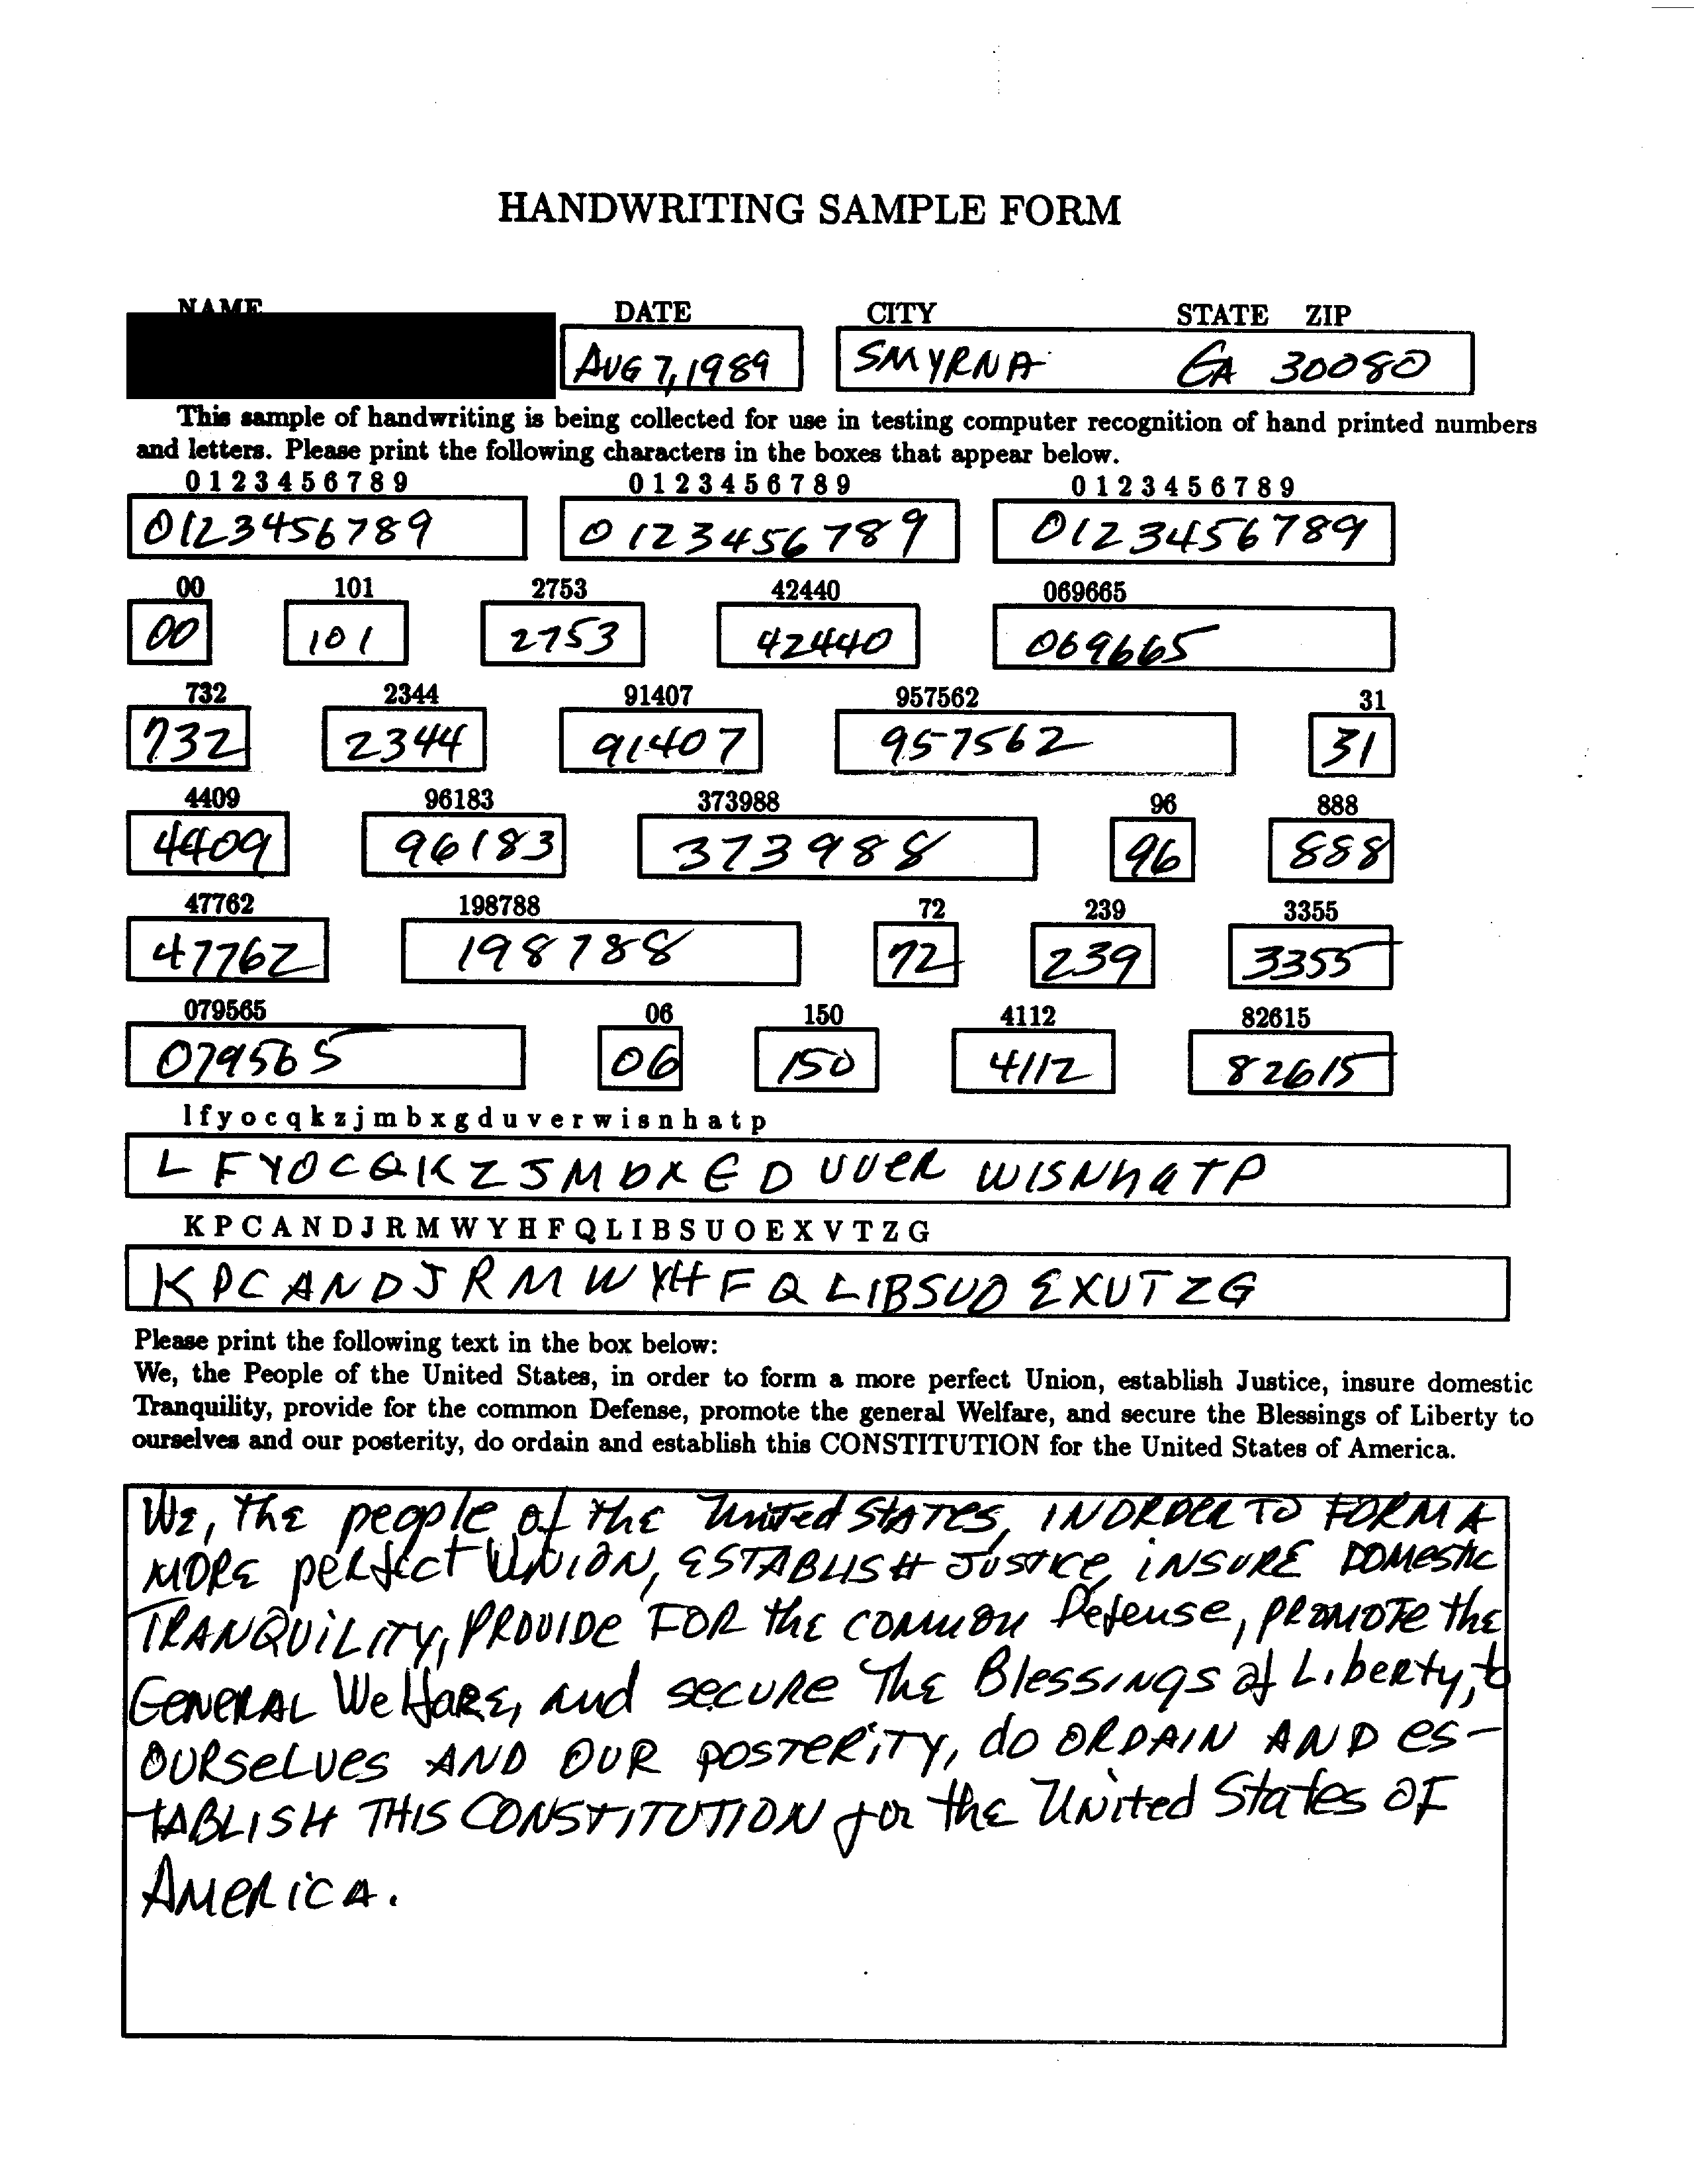 HANDWRITING SAMPLE FORM
NAME DATE CITY STATE ZIP
AUG 7, 1989 SMYRNA GA 30080
This sample of handwriting is being collected for use in testing computer recognition of hand printed numbers
and letters. Please print the following characters in the boxes that appear below.
0 1 2 3 4 5 6 7 8 9 0 1 2 3 4 5 6 7 8 9 0 1 2 3 4 5 6 7 8 9
0123456789 0123456789 0123456789
00 101 2753 42440 069665
00 101 2753 42440 069665
732 2344 91407 957562 31
732 2344 91407 957562 31
4409 96183 373988 96 888
4409 96183 373988 96 888
47762 198788 72 239 3355
47762 198788 72 239 3355
079565 06 150 4112 82615
079565 06 150 4112 82615
l f y o c q k z j m b x g d u v e r w i s n h a t p
L F Y O C Q K Z J M b X G D U V e R W I S N h a T P
K P C A N D J R M W Y H F Q L I B S U O E X V T Z G
K P C A N D J R M W Y H F Q L I B S U O E X V T Z G
Please print the following text in the box below:
We, the People of the United States, in order to form a more perfect Union, establish Justice, insure domestic
Tranquility, provide for the common Defense, promote the general Welfare, and secure the Blessings of Liberty to
ourselves and our posterity, do ordain and establish this CONSTITUTION for the United States of America.
WE, The people of the United STATES, IN ORDER TO FORM A
MORE perfect UNION, ESTABLISH JUSTICE, INSURE DOMESTIC
TRANQUILITY, PROVIDE FOR the COMMON Defense, PROMOTE the
GENERAL Welfare, and secure The Blessings of Liberty, to
OURSELVES AND OUR POSTERITY, do ORDAIN AND es-
TABLISH THIS CONSTITUTION for the United States OF
AMERICA.